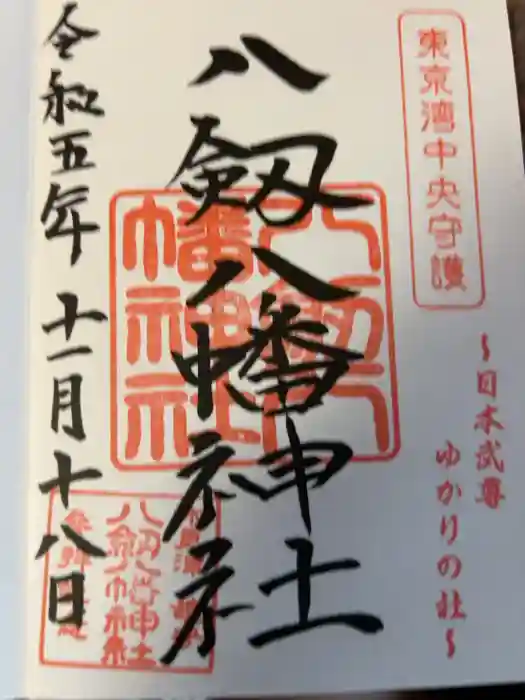 東京湾中央守護
~日本武尊
ゆかりの社~
八剱八幡神社
八剱八幡神社
令和五年十一月十八日
八剱八幡神社